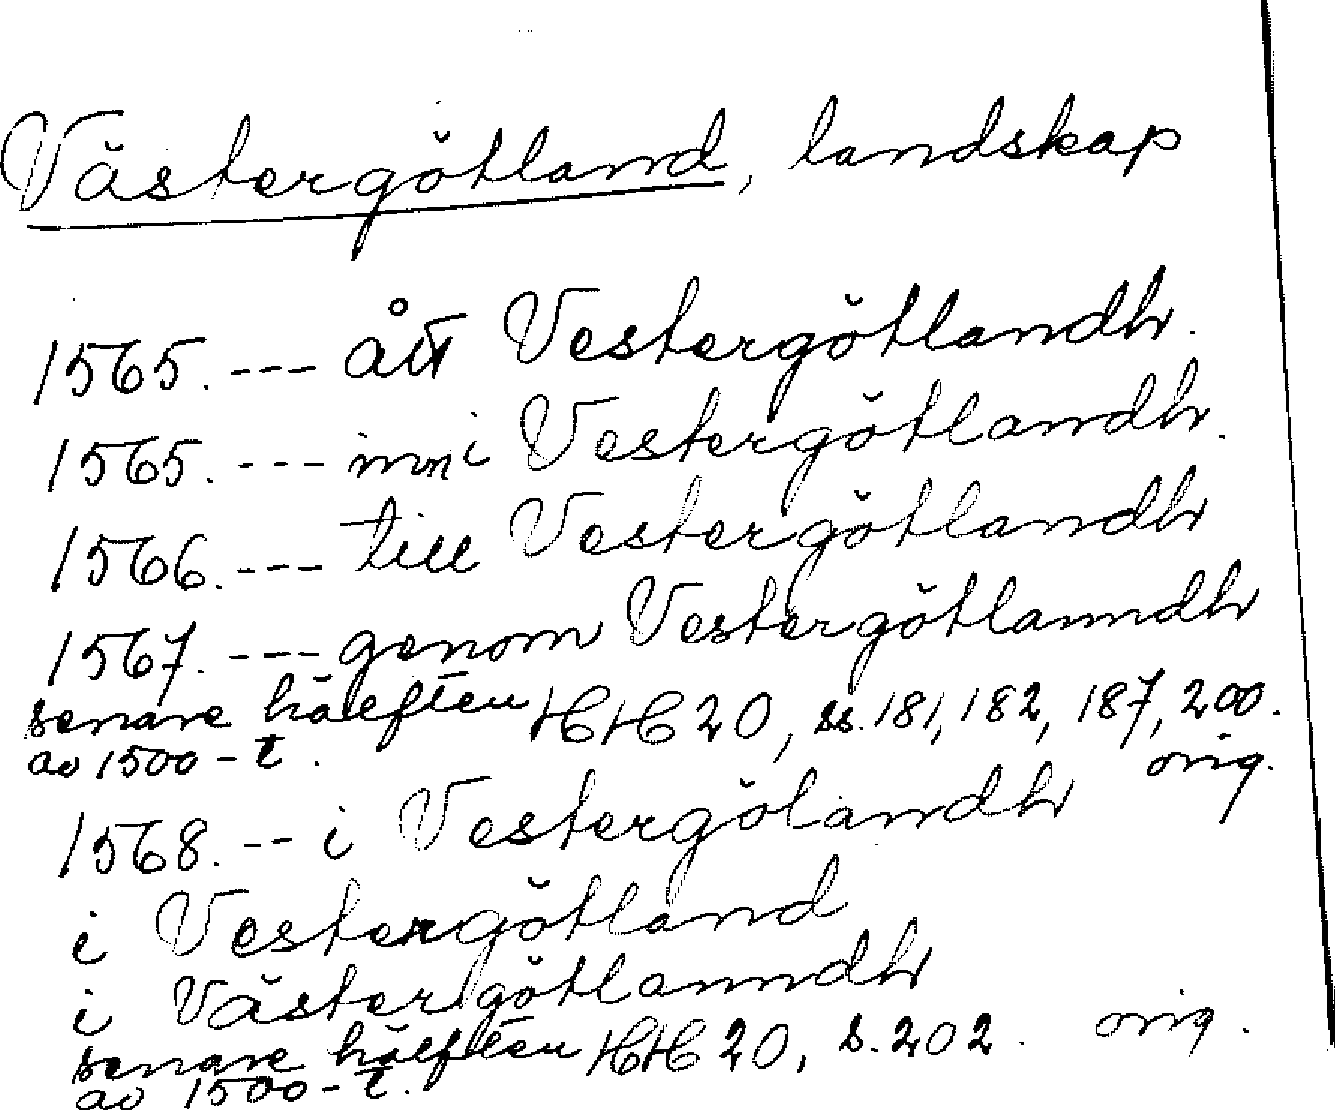 Västergötland, landskap
1565. --- ått Vestergötlandh.
1565. --- inn i Vestergötlandh.
1566. --- till Vestergötlandh
1567. --- genom Vestergötlanndh
senare hälften HH 20, ss. 181, 182, 187, 200.
av 1500-t. orig.
1568. -- i Vestergölandh
i Vestergötland
i Västergötlanndh
senare hälften HH 20, s. 202. orig.
av 1500-t.